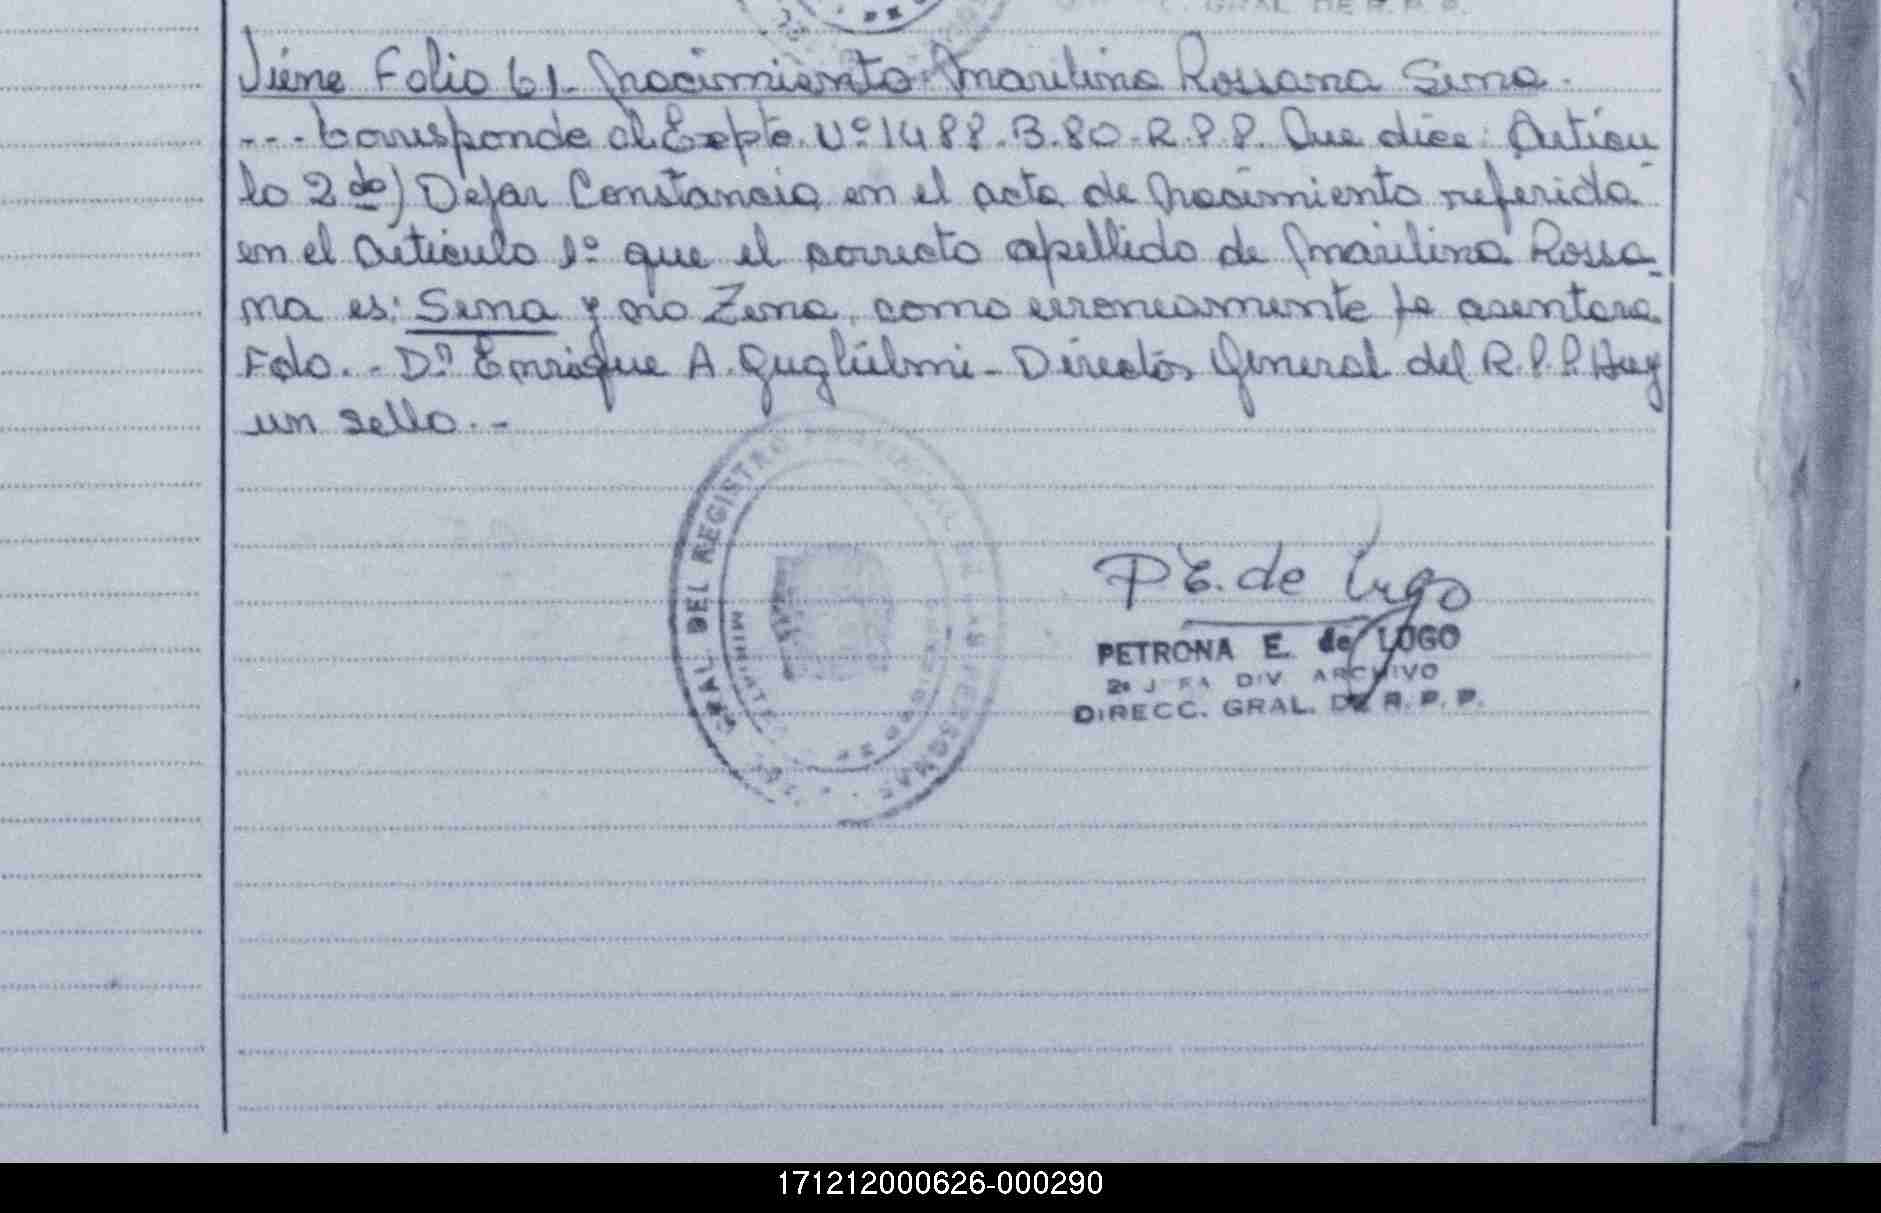 C. GRAL. DE R. P. P.
Viene Folio 61- Nacimiento: Marilina Rossana Sena.
--- Corresponde al Expte. Nº 1488.B.80-R.P.P. Que dice: Artícu
lo 2do) Dejar Constancia en el acta de Nacimiento referida
en el Artículo 1º que el correcto apellido de Marilina Rossa-
na es: Sena y no Zena, como erroneamente se asentara
Fdo.- Dº Enrique A. Guglielmi - Director General del R.P.P. Hay
un sello.-
GRAL. DEL REGISTRO PROVINCIAL DE LAS PERSONAS
P E. de Lugo
PETRONA E. de LUGO
2a JEFA DIV ARCHIVO
DIRECC. GRAL. DE R. P. P.
171212000626-000290